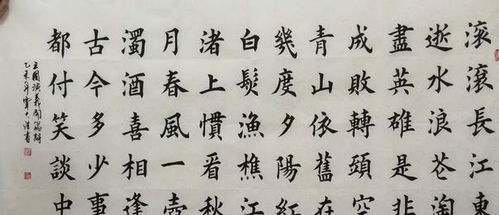 滚滚長江東
逝水浪花淘
盡英雄是非
成敗轉頭空
青山依舊在
幾度夕陽紅
白髮漁樵江
渚上慣看秋
月春風一壺
濁酒喜相逢
古今多少事
都付笑談中
三國演義開篇詞
乙未年書